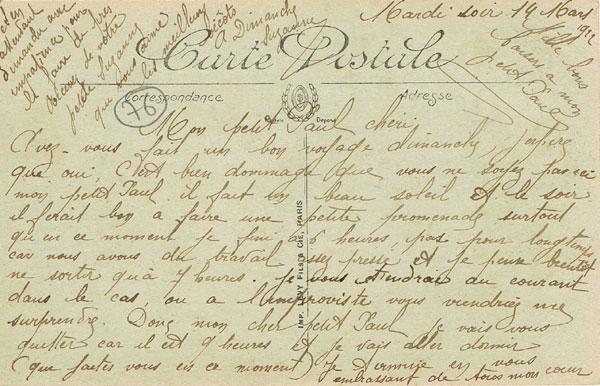 Mardi soir 14 Mars
Carte Postale
Correspondance
Adresse
76
Mille bons
baisers a mon
petit Paul
Mon petit Paul chéri
Avez-vous fait un bon voyage dimanche, j'espère
que oui, C'est bien dommage que vous ne soyez pas ici
mon petit Paul, il fait un beau soleil et le soir
il ferait bon a faire une petite promenade surtout
qu'en ce moment je fini a 6 heures, pas pour longtemps
car nous avons du travail assez pressé et je pense bientôt
ne sortir qu'à 7 heures. Je vous tiendrai au courant
dans le cas, ou a l'improviste vous viendriez me
surprendre. Donc mon cher petit Paul je vais vous
quitter car il est 9 heures et je vais aller dormir
(que faites vous en ce moment) Je termine en vous
embrassant de tout mon cœur
attendant
dimanche avec
impatience pour
petite Suzanne
que vous aime
les meilleurs
A Dimanche
Suzanne
IMP. LEVY FILS & CIE, PARIS